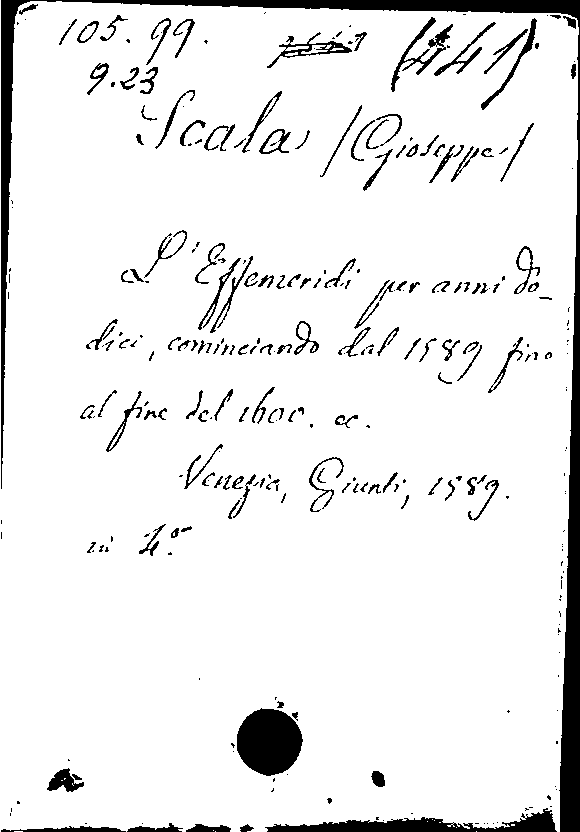 105. 99. (441)
9.23
Scala /Giuseppe/
L'Effemeridi per anni do-
dici, cominciando dal 1589 fino
al fine del 1600. ec.
Venezia, Giunti, 1589.
in 4.º